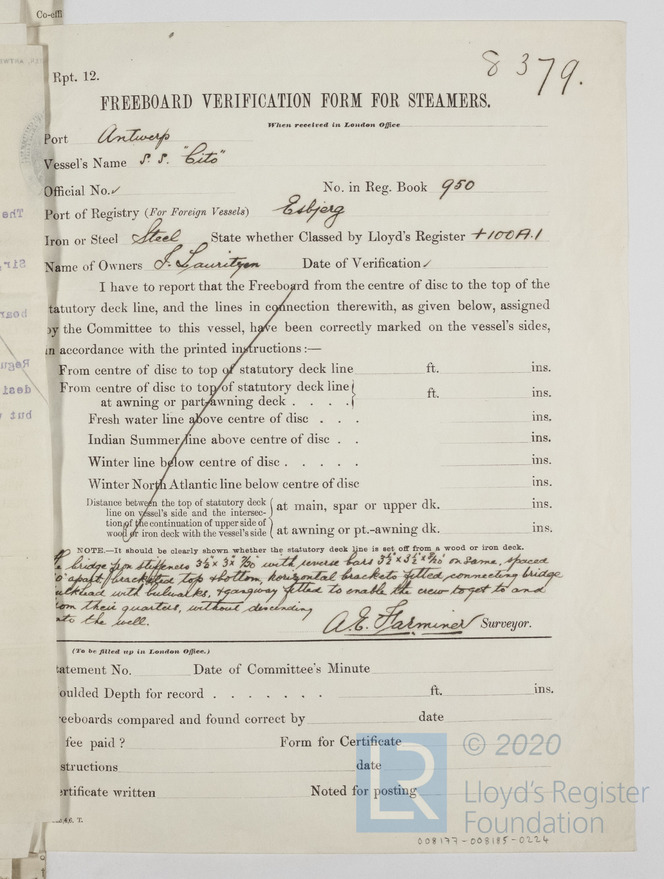 Co-effi
8379.
Rpt. 12.
FREEBOARD VERIFICATION FORM FOR STEAMERS.
When received in London Office
Port Antwerp
Vessel's Name S. S. "Cito"
Official No. No. in Reg. Book 950
Port of Registry (For Foreign Vessels) Esbjerg
Iron or Steel Steel State whether Classed by Lloyd's Register +100A.1
Name of Owners J. Lauritzen Date of Verification
I have to report that the Freeboard from the centre of disc to the top of the
tatutory deck line, and the lines in connection therewith, as given below, assigned
by the Committee to this vessel, have been correctly marked on the vessel's sides,
in accordance with the printed instructions:—
From centre of disc to top of statutory deck line ft. ins.
From centre of disc to top of statutory deck line
at awning or part-awning deck . . . . ft. ins.
Fresh water line above centre of disc . . . ins.
Indian Summer line above centre of disc . . ins.
Winter line below centre of disc . . . . . ins.
Winter North Atlantic line below centre of disc ins.
Distance between the top of statutory deck
line on vessel's side and the intersec-
tion of the continuation of upper side of
wood or iron deck with the vessel's side
at main, spar or upper dk. ins.
at awning or pt.-awning dk. ins.
NOTE.—It should be clearly shown whether the statutory deck line is set off from a wood or iron deck.
bridge stiffeners 3½" x 3" x 7/20 with reverse bars 3½" x 3½" x 8/20 on same, spaced
apart, bracketed top & bottom, horizontal brackets fitted, connecting bridge
ulkhead with bulwarks, & gangway fitted to enable the crew to get to and
rom their quarters, without descending
nto the well.
A. E. Farminer Surveyor.
(To be filled up in London Office.)
tatement No. Date of Committee's Minute
oulded Depth for record . . . . . . . ft. ins.
reeboards compared and found correct by date
fee paid ? Form for Certificate
structions date
ertificate written Noted for posting
© 2020
LR
Lloyd's Register
Foundation
008177-008185-0224